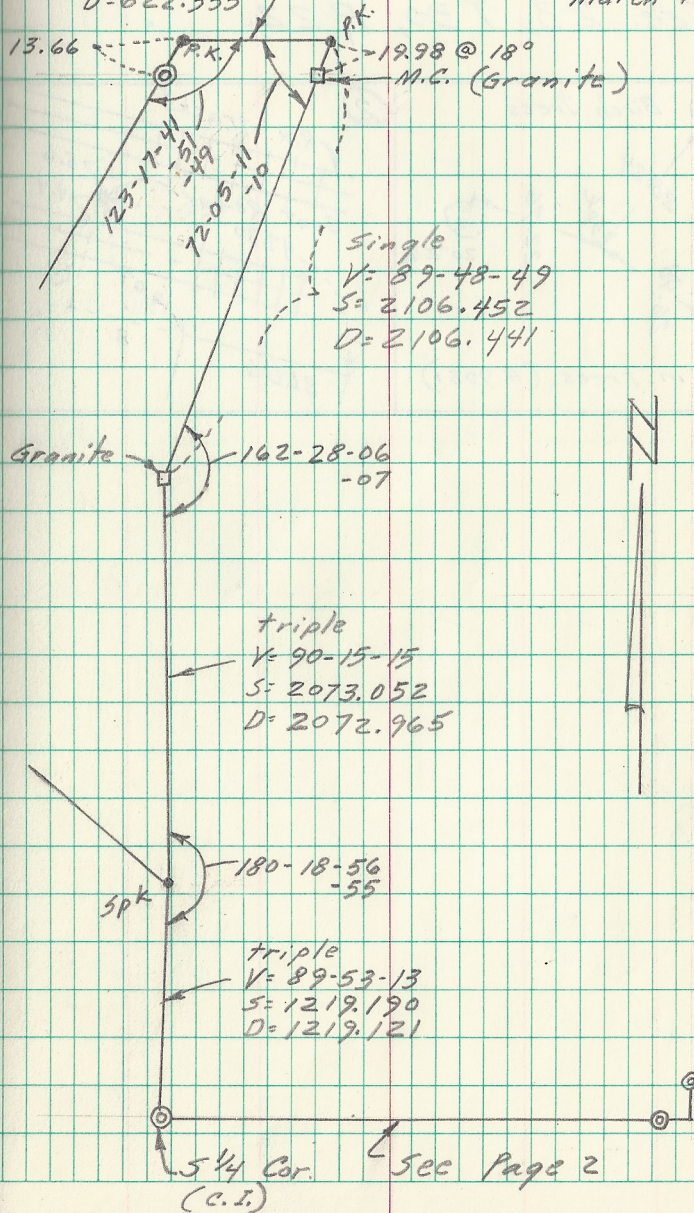 D=622.555
March
13.66
P.K.
P.K.
19.98 @ 18°
M.C. (Granite)
123-17-41
-51
-49
72-05-11
-10
Single
V= 89-48-49
S= 2106.452
D= 2106.441
Granite
162-28-06
-07
N
triple
V= 90-15-15
S= 2073.052
D= 2072.965
180-18-56
-55
Spk
triple
V= 89-53-13
S= 1219.190
D= 1219.121
S 1/4 Cor.
(C.I.)
See Page 2